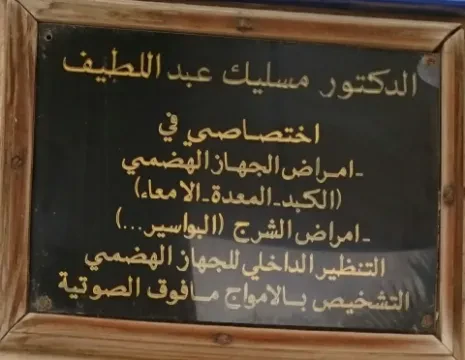 الدكتور مسليك عبد اللطيف
اختصاصي في
-امراض الجهاز الهضمي
(الكبد-المعدة-الامعاء)
-امراض الشرج (البواسير...)
التنظير الداخلي للجهاز الهضمي
التشخيص بالامواج مافوق الصوتية